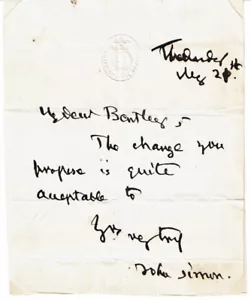 Thursday
My dear Bentley,
The change you
propose is quite
acceptable to
Yrs very truly
John Simon.